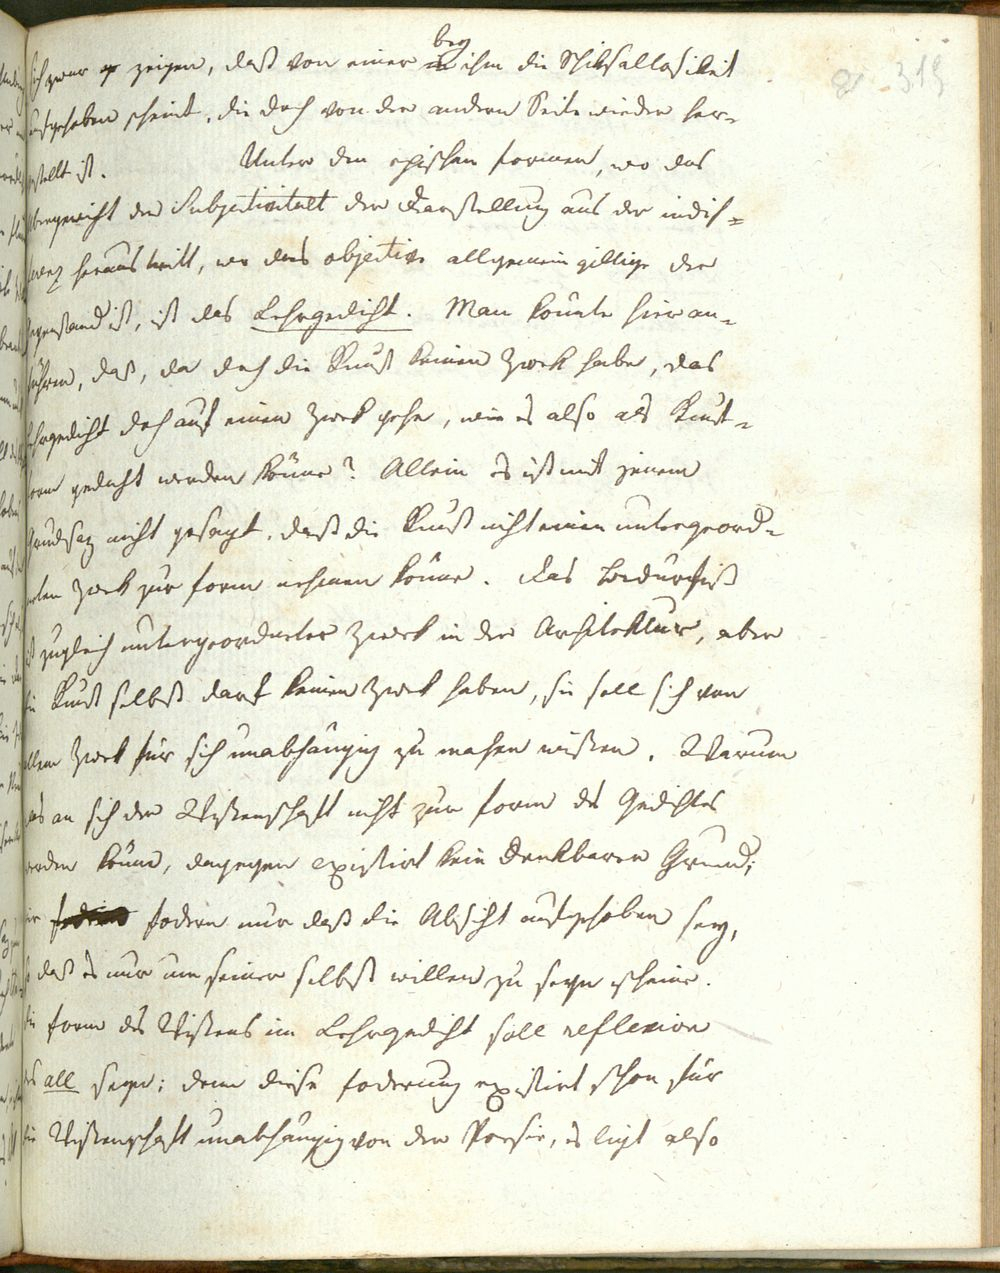 bey
sich zwar zeigen, daß von einer ihm die Schiksallosikeit
aufgehoben scheint, die doch von der andern Seite wieder her-
gestellt ist. Unter den epischen formen, wo das
Übergewicht der Subjectivitaet der Darstellung aus der indif-
ferenz heraustritt, wo das objective allgemein giltige der
Gegenstand ist, ist das Lehrgedicht. Man könnte hier an-
führen, daß, da doch die Kunst keinen Zwek habe, das
Lehrgedicht doch auf einen Zwek gehe, wie es also als Kunst-
form gedacht werden könne? Allein es ist mit jenem
Grundsaz nicht gesagt, daß die Kunst nicht einen untergeord-
neten Zwek zur form nehmen könne. Das Bedürfniß
ist zugleich untergeordneter Zwek in der Architektur, aber
die Kunst selbst darf keinen Zwek haben, sie soll sich von
allem Zwek für sich unabhängig zu machen wissen. Warum
das an sich der Wissenschaft nicht zur form des Gedichtes
werden könne, dagegen existirt kein denkbarer Grund;
wir fodern nur daß die Absicht aufgehoben sey,
so daß es nur um seiner selbst willen zu seyn scheine.
Die form des Wissens im Lehrgedicht soll reflexion
des all seyn; denn diese foderung existirt schon für
die Wissenschaft unabhängig von der Poesie, es ligt also
319